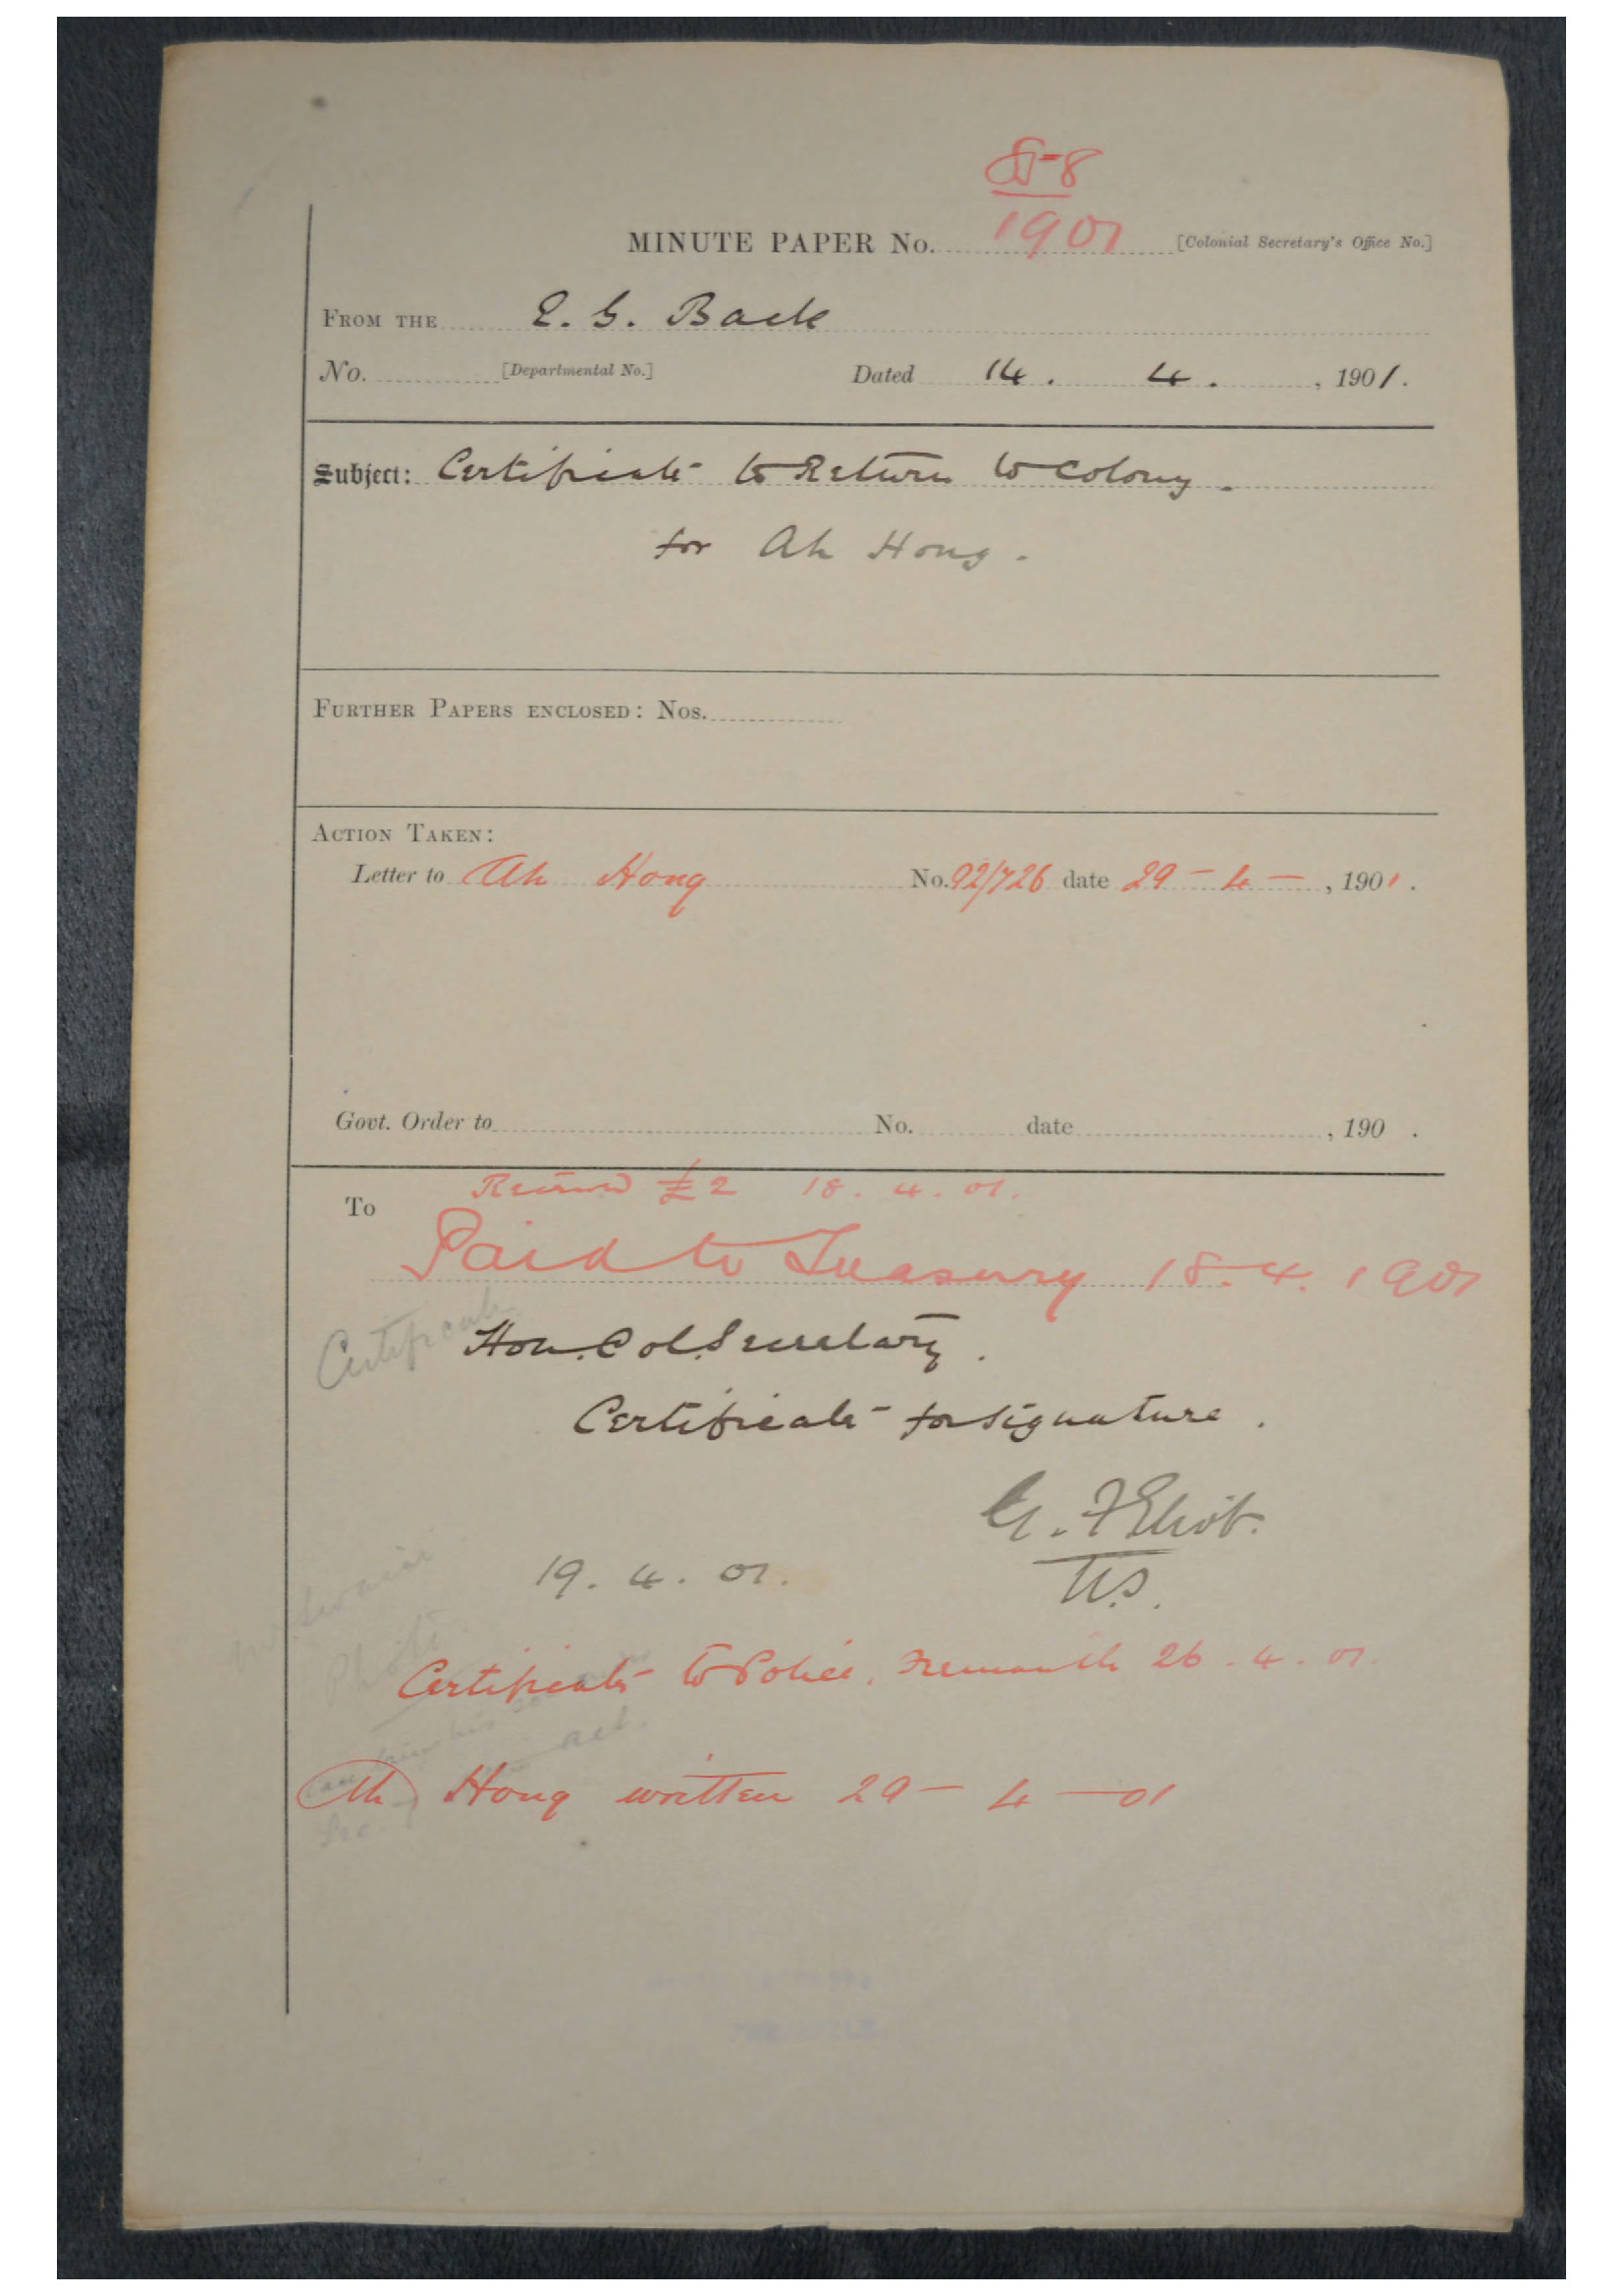 1901
MINUTE PAPER No. [Colonial Secretary's Office No.]
FROM THE E. G. Back
No. [Departmental No.] Dated 14. 4. , 1901.
Subject: Certificate to Return to Colony.
for Ah Hong.
FURTHER PAPERS ENCLOSED: Nos.
ACTION TAKEN:
Letter to Ah Hong No. 92/726 date 29-4-, 1901.
Govt. Order to No. date , 190 .
Received £2 18. 4. 01.
To
Paid to Treasury 18.4.1901
Certificate
Hon. Col. Secretary.
Certificate for signature.
G. F Eliot.
U.S.
19. 4. 01.
Photo
Certificate to Police, Fremantle 26. 4. 01.
act.
Ah Hong written 29-4-01